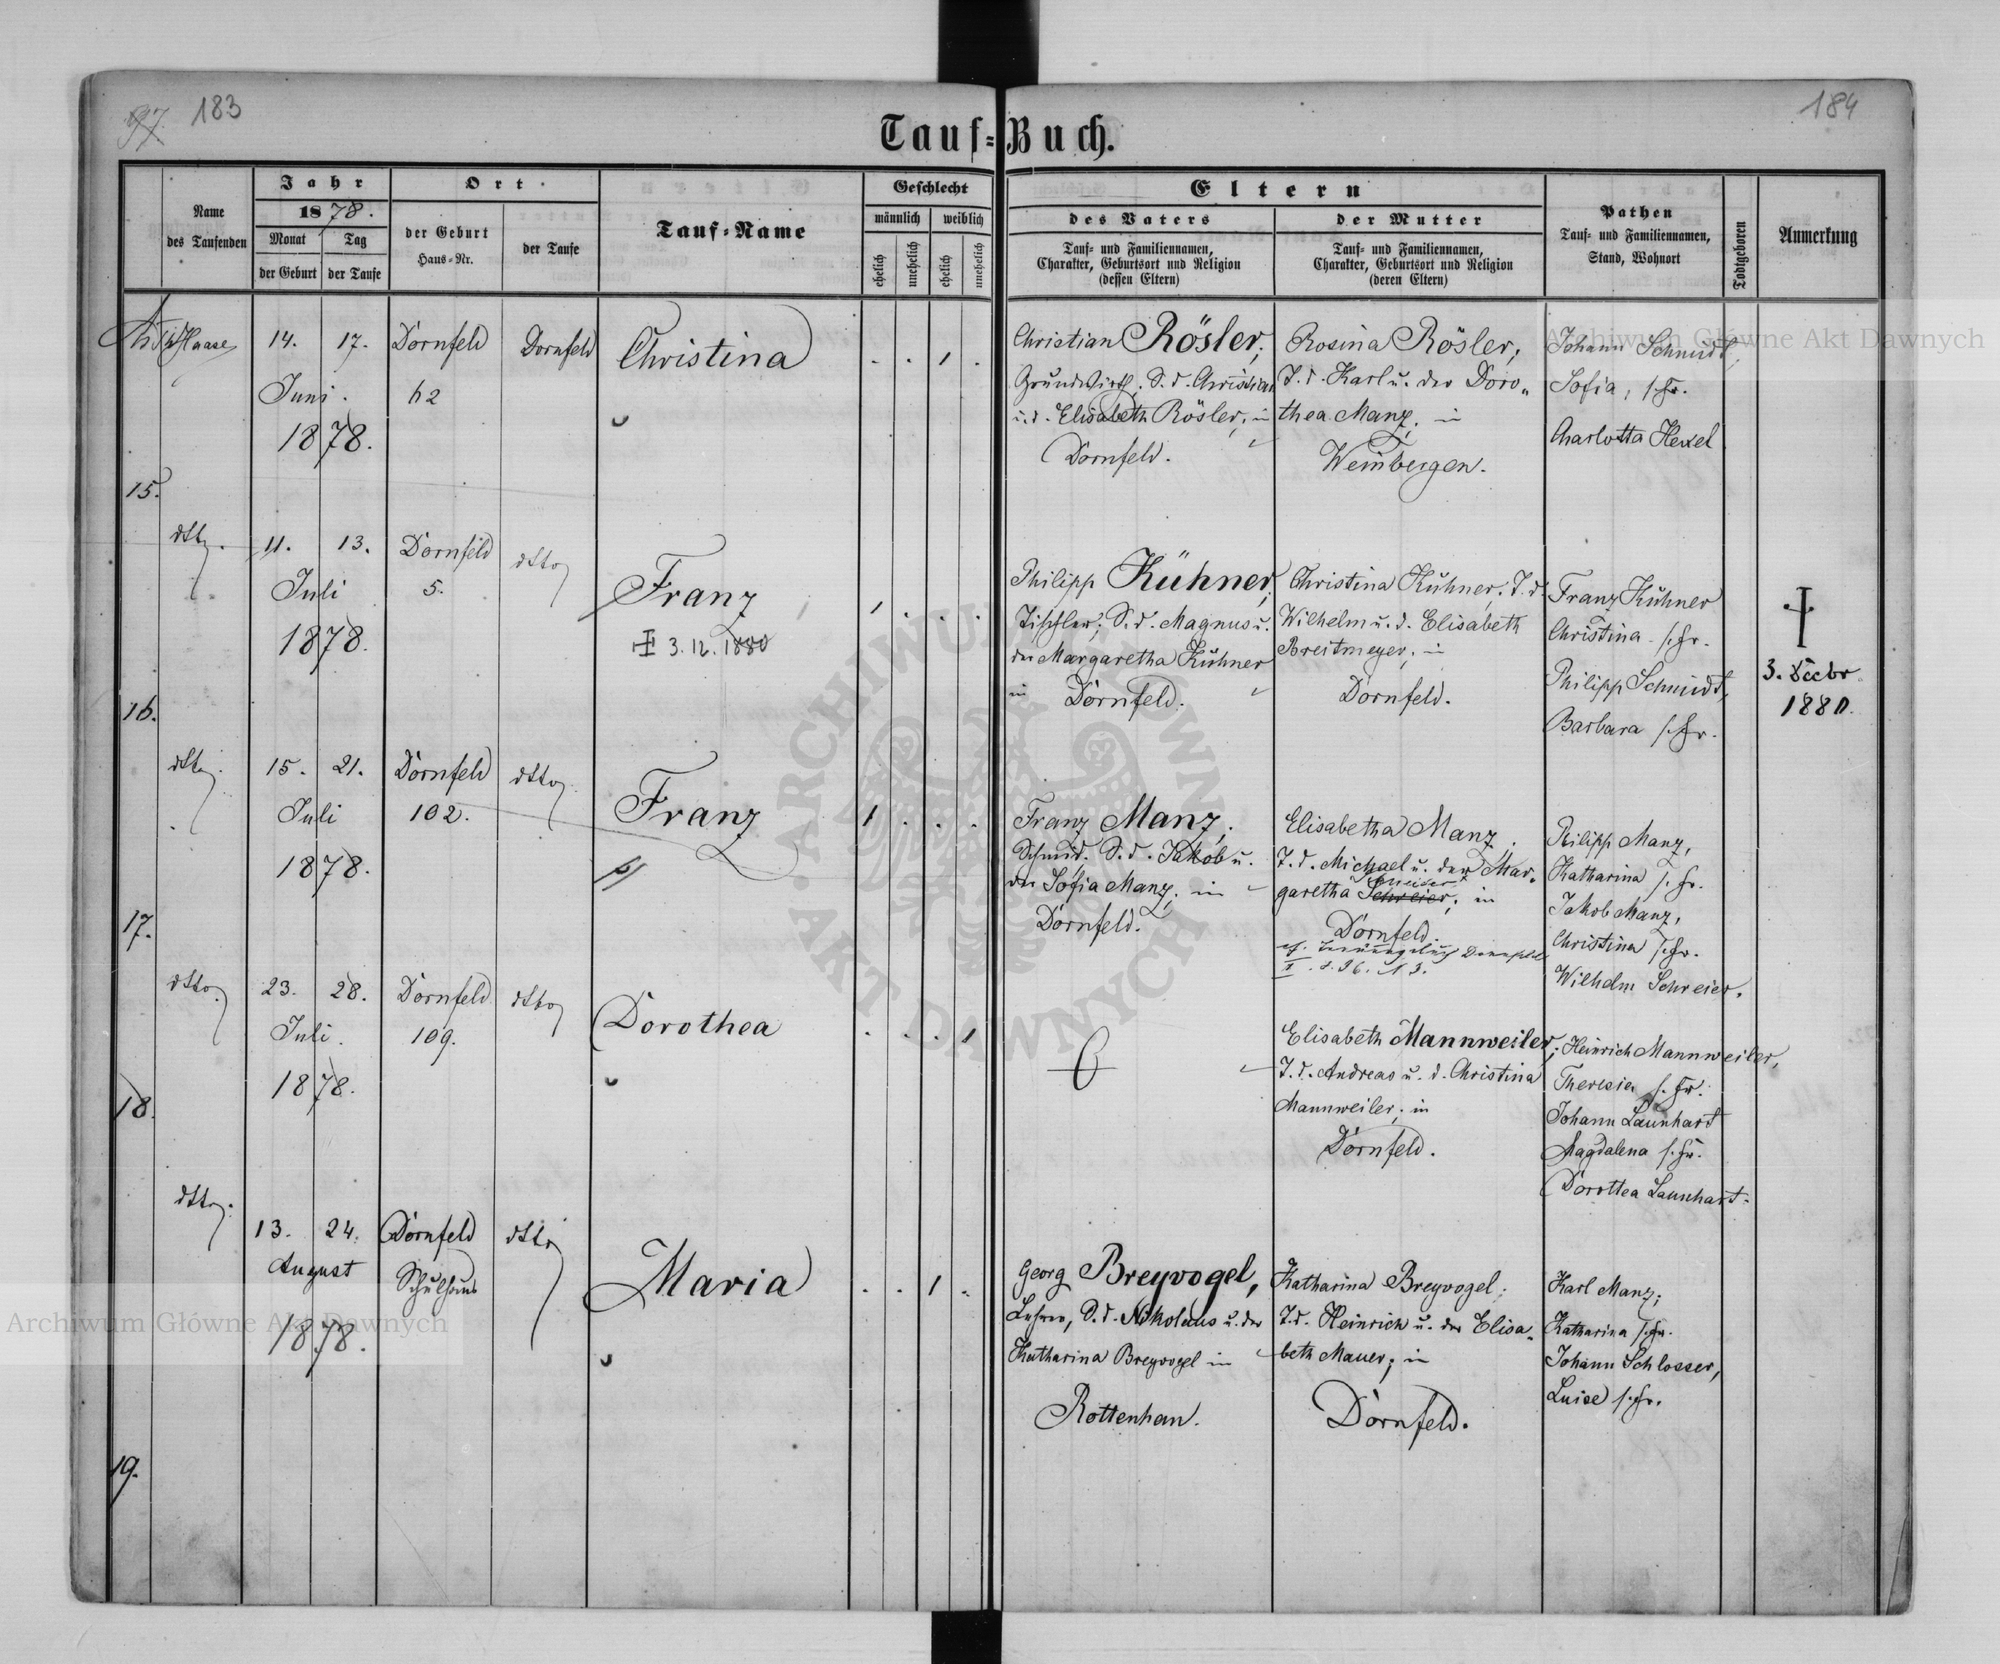 97.
183
184
Tauf-Buch.
Name
des Taufenden
Jahr
1878.
Monat
Tag
der Geburt
der Taufe
Ort
der Geburt
Haus-Nr.
der Taufe
Tauf-Name
Geschlecht
männlich
weiblich
ehelich
unehelich
ehelich
unehelich
Eltern
des Vaters
Tauf- und Familiennamen,
Charakter, Geburtsort und Religion
(dessen Eltern)
der Mutter
Tauf- und Familiennamen,
Charakter, Geburtsort und Religion
(deren Eltern)
Pathen
Tauf- und Familiennamen,
Stand, Wohnort
Todtgeboren
Anmerkung
15.
Haase
14.
17.
Juni.
1878.
Dornfeld
62
Dornfeld
Christina
1
Christian Rösler;
Grundwirth; S. d. Christian
u. d. Elisabeth Rösler; in
Dornfeld.
Rosina Rösler;
T. d. Karl u. der Doro-
thea Manz; in
Weinbergen.
Johann Schmidt,
Sofia, s. Fr.
Charlotta Hexel
16.
dtto.
11.
13.
Juli
1878.
Dornfeld
5.
dtto
Franz
3. 12. 1880
1
Philipp Kühner;
Tischler; S. d. Magnus u.
der Margaretha Kühner
in Dornfeld.
Christina Kühner; T. d.
Wilhelm u. d. Elisabeth
Breitmeyer; in
Dornfeld.
Franz Kühner
Christina s. Fr.
Philipp Schmidt,
Barbara s. Fr.
3. Decbr
1880.
17.
dtto.
15.
21.
Juli
1878.
Dornfeld
102.
dtto
Franz
1
Franz Manz;
Schmid; S. d. Jakob u.
der Sofia Manz; in
Dornfeld.
Elisabetha Manz;
T. d. Michael u. der Mar-
garetha Schreier; in
Dornfeld.
II. S. 36. N 3.
Philipp Manz,
Katharina s. Fr.
Jakob Manz,
Christina s. Fr.
Wilhelm Schreier.
18.
dtto.
23.
28.
Juli.
1878.
Dornfeld
109.
dtto
Dorothea
1
Elisabeth Mannweiler;
T. d. Andreas u. d. Christina
Mannweiler; in
Dornfeld.
Heinrich Mannweiler,
Theresia s. Fr.
Johann Launhart
Magdalena s. Fr.
Dorothea Launhart.
19.
dtto.
13.
24.
August
1878.
Dornfeld
Schulhaus
dtto
Maria
1
Georg Breyvogel,
Lehrer, S. d. Nikolaus u. der
Katharina Breyvogel in
Rottenhan.
Katharina Breyvogel;
T. d. Heinrich u. der Elisa-
beth Mauer; in
Dornfeld.
Karl Manz;
Katharina s. Fr.
Johann Schlosser,
Luise s. Fr.
Archiwum Główne Akt Dawnych
Archiwum Główne Akt Dawnych